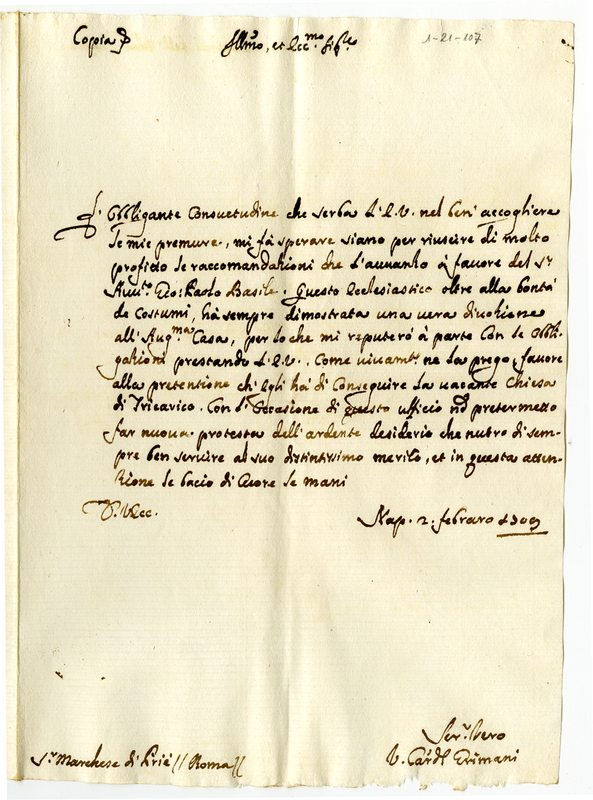 Copia
Illmo, et Ecc.mo Sig.re
1-21-107
L' Obbligante Consuetudine che serba L'E.V. nel ben accogliere
le mie premure, mi fà sperare siano per riuscire di molto
profitto le raccomandazioni che l'auuanzo à fauore del S.r
Gio: Paolo Basile. Questo Ecclesiastico oltre alla bontà
de Costumi, hà sempre dimostrata una uera diuozione
all' Aug.ma Casa, per loche mi reputerò à parte con le obbli-
gazioni prestando L'E.V., Come uiuam.te ne la prego, fauore
alla pretentione ch' Egli hà di conseguire la uacante Chiesa
di Tricarico. Con l' Occasione di questo ufficio nõ pretermetto
far nuoua protesta dell' ardente desiderio che nutro di sem-
pre ben seruire al suo distintissimo merito, et in questa atten-
zione le bacio di Cuore le mani
D. V. Ecc.
Nap. 2. febraro 1709
Ser.r Vero
V. Card.l Grimani
S.r Marchese di Prié // Roma //